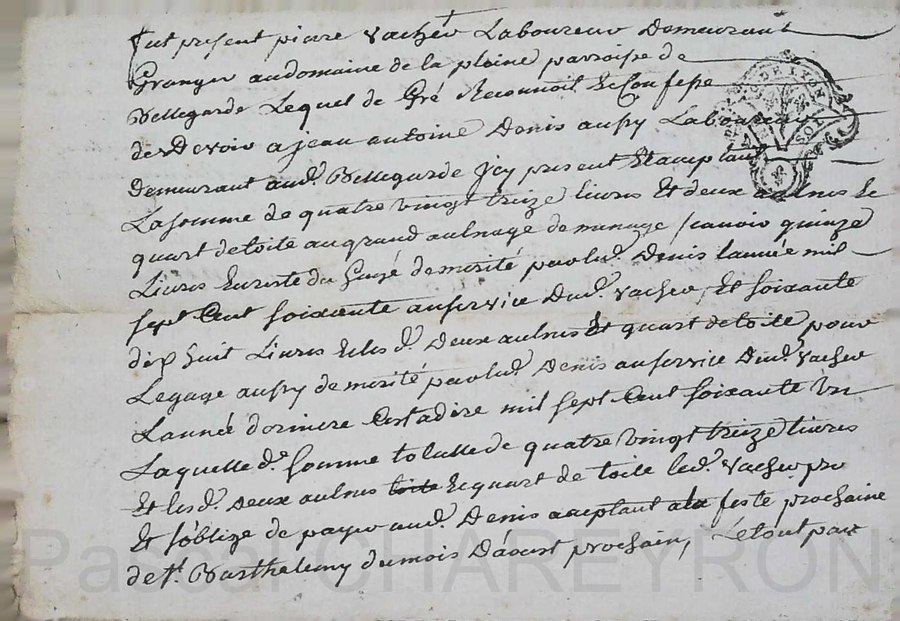 fut présent pierre vacher Laboureur Demeurant
Granger audomaine de la pleine parroisse de
Bellegarde Lequel de Gré Reconnoit Et Confesse
der Devoir a jean antoine Denis aussy Laboureur
demeurant aud. Bellegarde Icy present Et acceptant
La somme de quatre vingt treize livres Et deux aulnes Et
quart detoile augrand aulnage de menage scavoir quinze
Livres Enreste du Gagé demerité parlud. Denis lannée mil
sept Cent soixante auservice Dud. vacher, Et soixante
dix huit Livres Et les d. Deux aulnes Et quart detoile pour
Legage aussy demerité parlud. Denis auservice Dud. vacher
Lannée derniere Cestadire mil sept Cent soixante un
Laquelle de. somme totalle de quatre vingt treize livres
Et lesd. Deux aulnes toile Et quart de toile led. vacher pro
Et soblige de payer aud. Denis acceptant ala feste prochaine
de st. Barthelemy dumois Daoust prochain, Letout par
DE LYON
SOLS
Pascal CHAREYRON